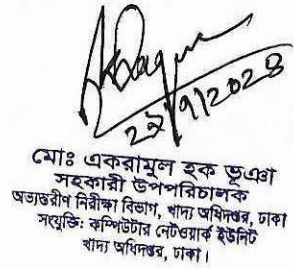 ২২/৭/২০২৪
মোঃ একরামুল হক ভূঞা
সহকারী উপপরিচালক
অভ্যন্তরীণ নিরীক্ষা বিভাগ, খাদ্য অধিদপ্তর, ঢাকা
সংযুক্তি: কম্পিউটার নেটওয়ার্ক ইউনিট
খাদ্য অধিদপ্তর, ঢাকা।